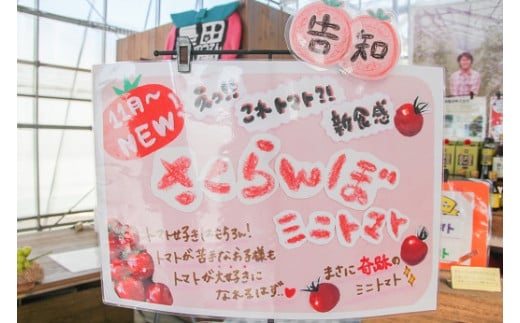 告知
11月〜
NEW!
えっ!!
これトマト?!
新食感
さくらんぼ
ミニトマト
トマト好きはもちろん!
トマトが苦手なお子様も
トマトが大好きに
なれるはず…♥
まさに奇跡の
ミニトマト